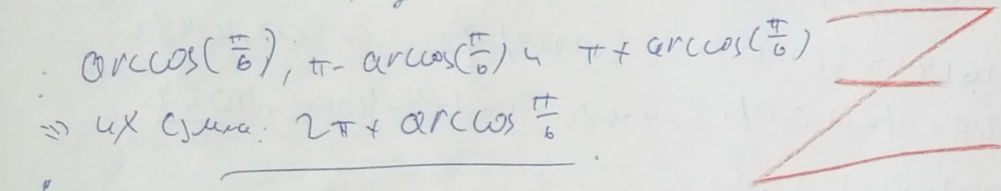 arccos(π/6), π - arccos(π/6) и π + arccos(π/6)
=> их сумма: 2π + arccos π/6